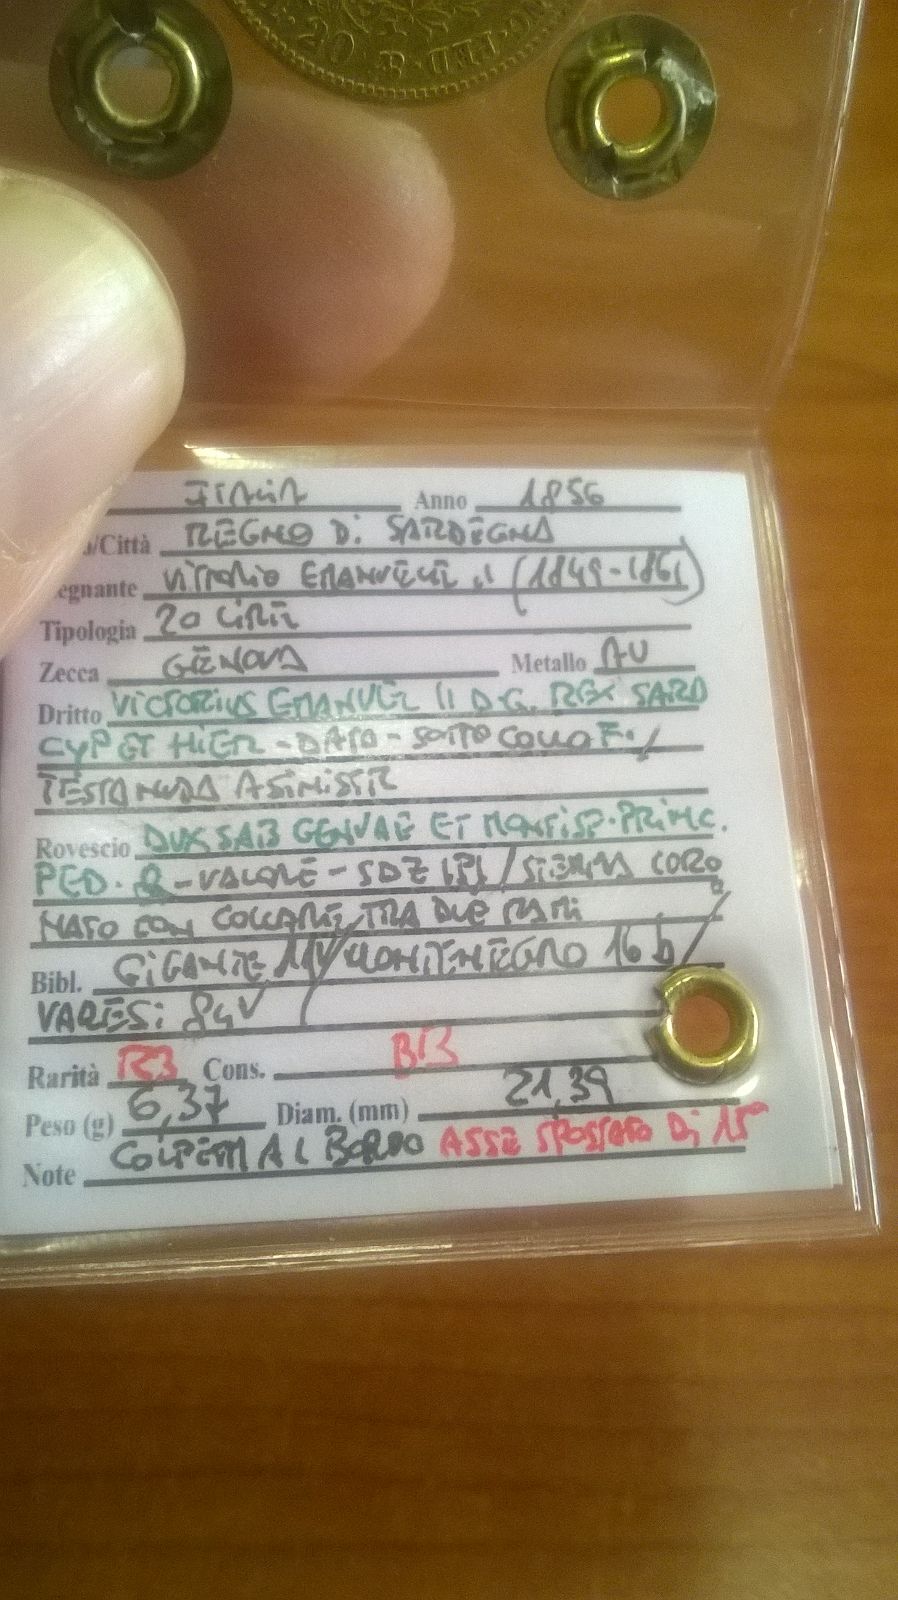 20
ITALIA Anno 1856
/Città REGNO DI SARDEGNA
egnante VITTORIO EMANUELE II (1849-1861)
Tipologia 20 LIRE
Zecca GENOVA Metallo AU
Dritto VICTORIUS EMANUEL II D.G. REX SARD
CYP ET HIER - DATA - SOTTO COLLO F. /
TESTA NUDA A SINISTR
Rovescio DUX SAB GENVAE ET MONTISF. PRINC.
PED. & - VALORE - / STEMMA CORO
NATO CON COLLARE, TRA DUE RAMI
Bibl. GIGANTE / MONTENEGRO 16 b /
VARESI
Rarità R3 Cons. BB
Peso (g) 6,37 Diam. (mm) 21,39
Note COLPETTI AL BORDO ASSE SPOSTATO DI 15°